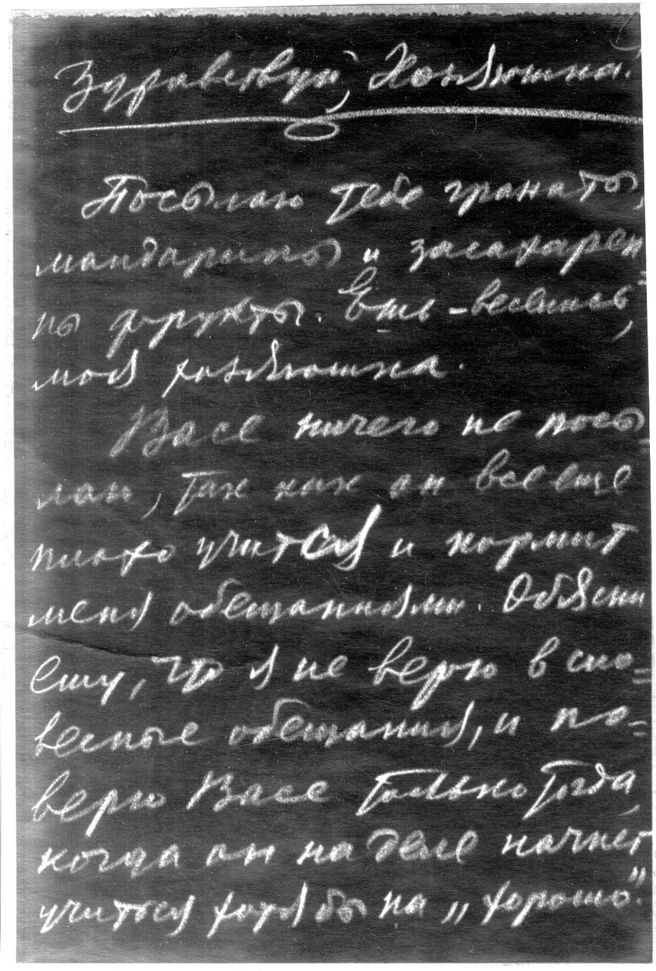 Здравствуй, Хозяюшка.
Посылаю тебе гранаты,
мандарины и засахарен
ны фрукты. Ешь - веселись,
моя хозяюшка.
Васе ничего не посы-
лаю, так как он все еще
плохо учится и кормит
меня обещаниями. Объясни
ему, что я не верю в сло=
весные обещания, и по=
верю Васе только тогда,
когда он на деле начнет
учиться хотя бы на „хорошо".